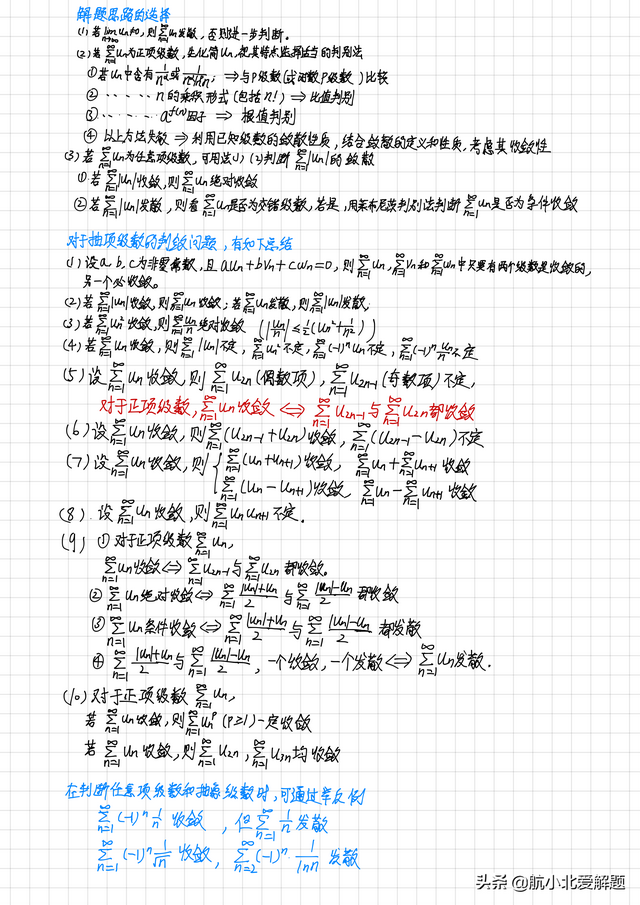 解题思路的选择
(1) 若 lim_{n→∞} uₙ≠0, 则 ∑_{n=1}^∞ uₙ发散, 否则进一步判断.
(2) 若 ∑_{n=1}^∞ uₙ为正项级数, 先化简uₙ, 根据其特点选择适当的判别法
① 若uₙ中含有
⇒ 与P级数(或对数P级数)比较
② ······ n的乘积形式(包括n!) ⇒ 比值判别
③ ······ a^{f(n)}因子 ⇒ 根值判别
④ 以上方法失效 ⇒ 利用已知级数的敛散性质, 结合敛散的定义和性质, 考虑其收敛性
(3) 若 ∑_{n=1}^∞ uₙ为任意项级数, 可用法(1) (2)判断 ∑_{n=1}^∞ |uₙ| 的敛散
① 若 ∑_{n=1}^∞ |uₙ| 收敛, 则 ∑_{n=1}^∞ uₙ绝对收敛
② 若 ∑_{n=1}^∞ |uₙ| 发散, 则看 ∑_{n=1}^∞ uₙ是否为交错级数, 若是, 用莱布尼茨判别法判断 ∑_{n=1}^∞ uₙ是否为条件收敛
对于抽项级数的判敛问题, 有如下总结
(1) 设a, b, c为非零常数, 且 auₙ+bvₙ+cwₙ=0, 则 ∑_{n=1}^∞ uₙ, ∑_{n=1}^∞ vₙ和 ∑_{n=1}^∞ wₙ中只要有两个级数是收敛的,
另一个必收敛。
(2) 若 ∑_{n=1}^∞ |uₙ| 收敛, 则 ∑_{n=1}^∞ uₙ收敛; 若 ∑_{n=1}^∞ uₙ发散, 则 ∑_{n=1}^∞ |uₙ| 发散;
(3) 若 ∑_{n=1}^∞ uₙ² 收敛, 则 ∑_{n=1}^∞ uₙ/n 绝对收敛 (|uₙ/n| ≤ ½(uₙ²+1/n²))
(4) 若 ∑_{n=1}^∞ uₙ 收敛, 则 ∑_{n=1}^∞ |uₙ| 不定, ∑_{n=1}^∞ uₙ² 不定, ∑_{n=1}^∞ (-1)ⁿ uₙ 不定, ∑_{n=1}^∞ (-1)ⁿ uₙ/n 不定
(5) 设 ∑_{n=1}^∞ uₙ 收敛, 则 ∑_{n=1}^∞ u₂ₙ (偶数项), ∑_{n=1}^∞ u₂ₙ₋₁ (奇数项) 不定,
对于正项级数, ∑_{n=1}^∞ uₙ收敛 ⇔ ∑_{n=1}^∞ u₂ₙ₋₁ 与 ∑_{n=1}^∞ u₂ₙ 都收敛
(6) 设 ∑_{n=1}^∞ uₙ 收敛, 则 ∑_{n=1}^∞ (u₂ₙ₋₁+u₂ₙ) 收敛, ∑_{n=1}^∞ (u₂ₙ₋₁-u₂ₙ) 不定
(7) 设 ∑_{n=1}^∞ uₙ 收敛, 则 { ∑_{n=1}^∞ (uₙ+uₙ₊₁) 收敛, ∑_{n=1}^∞ uₙ+∑_{n=1}^∞ uₙ₊₁ 收敛
∑_{n=1}^∞ (uₙ-uₙ₊₁) 收敛, ∑_{n=1}^∞ uₙ-∑_{n=1}^∞ uₙ₊₁ 收敛
(8). 设 ∑_{n=1}^∞ uₙ 收敛, 则 ∑_{n=1}^∞ uₙuₙ₊₁ 不定.
(9) ① 对于正项级数 ∑_{n=1}^∞ uₙ,
∑_{n=1}^∞ uₙ收敛 ⇔ ∑_{n=1}^∞ u₂ₙ₋₁ 与 ∑_{n=1}^∞ u₂ₙ 都收敛。
② ∑_{n=1}^∞ uₙ 绝对收敛 ⇔ ∑_{n=1}^∞ (|uₙ|+uₙ)/2 与 ∑_{n=1}^∞ (|uₙ|-uₙ)/2 都收敛
③ ∑_{n=1}^∞ uₙ 条件收敛 ⇔ ∑_{n=1}^∞ (|uₙ|+uₙ)/2 与 ∑_{n=1}^∞ (|uₙ|-uₙ)/2 都发散
④ ∑_{n=1}^∞ (|uₙ|+uₙ)/2 与 ∑_{n=1}^∞ (|uₙ|-uₙ)/2, 一个收敛, 一个发散 ⇔ ∑_{n=1}^∞ uₙ发散.
(10) 对于正项级数 ∑_{n=1}^∞ uₙ,
若 ∑_{n=1}^∞ uₙ 收敛, 则 ∑_{n=1}^∞ uₙᵖ (P≥1) 一定收敛
若 ∑_{n=1}^∞ uₙ 收敛, 则 ∑_{n=1}^∞ u₂ₙ, ∑_{n=1}^∞ u₃ₙ 均收敛
在判断任意项级数和抽象级数时, 可通过举反例
∑_{n=1}^∞ (-1)ⁿ 1/n 收敛, 但 ∑_{n=1}^∞ 1/n 发散
∑_{n=1}^∞ (-1)ⁿ 1/√n 收敛, ∑_{n=2}^∞ (-1)ⁿ · 1/lnn 发散
头条 @航小北爱解题